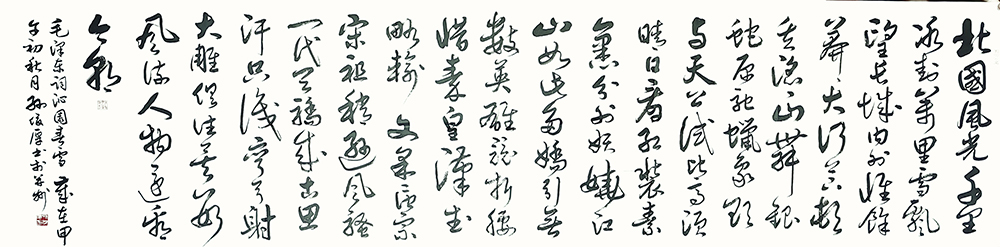 北國風光千里
冰封萬里雪飄
望長城内外惟餘
莽莽大河上下頓
失滔滔山舞銀
蛇原馳蠟象欲
与天公試比高須
晴日看紅裝素
裹分外妖嬈江
山如此多嬌引無
數英雄競折腰
惜秦皇漢武
略輸文采唐宗
宋祖稍遜風騷
一代天驕成吉思
汗只識彎弓射
大雕俱往矣數
風流人物還看
今朝
毛澤東詞沁園春雪 歲在甲
午初秋月孫